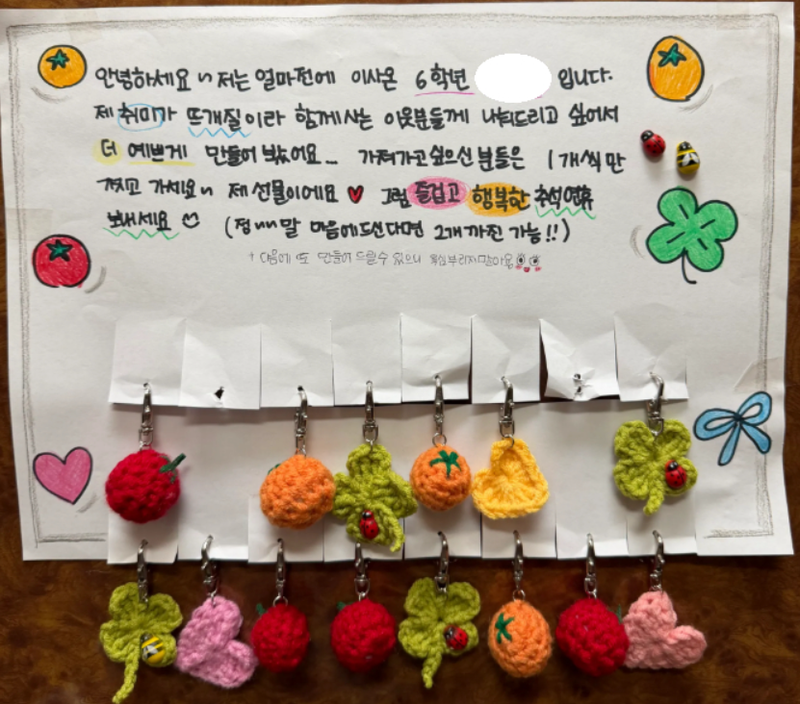 안녕하세요~ 저는 얼마전에 이사온 6학년 입니다.
제 취미가 뜨개질이라 함께사는 이웃분들께 나눠드리고 싶어서
더 예쁘게 만들어 봤어요... 가져가고싶으신 분들은 1개씩만
찢고 가세요~ 제 선물이에요 ♥ 그럼 즐겁고 행복한 추석연휴
보내세요 ☺ (정~~말 마음에드신다면 2개 까진 가능!!)
+ 다음에 또 만들어 드릴수 있으니 욕심부리지말아요